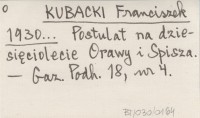 o
KUBACKI Franciszek
1930... Postulat na dzie-
sięciolecie Orawy i Spisza.
— Gaz. Podh. 18, nr 4.